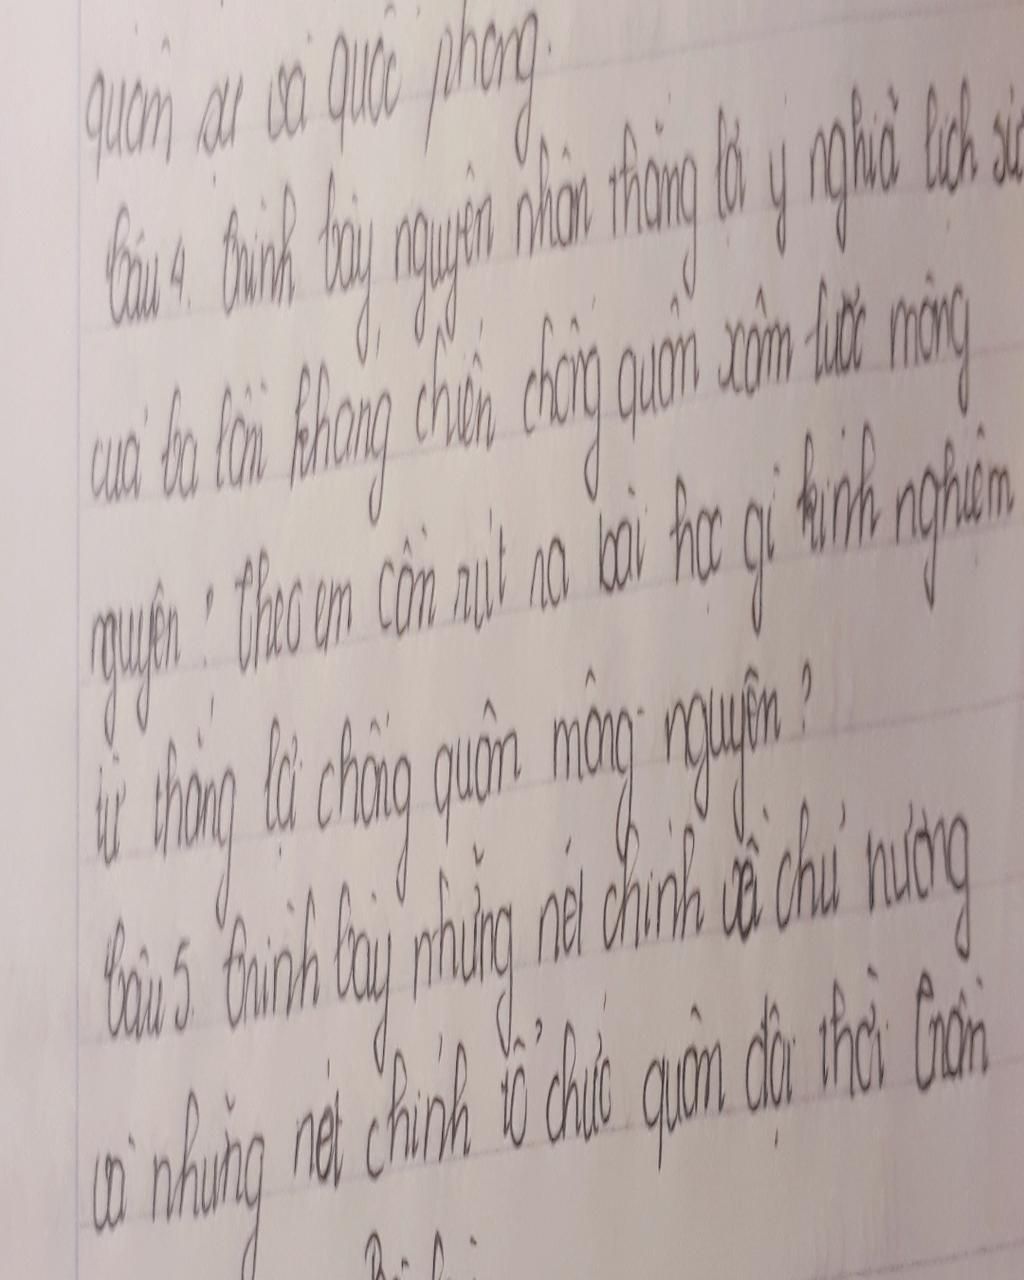 quân sự và quốc phòng.
Câu 4. trình bày nguyên nhân thắng lợi ý nghĩa lịch sử
của ba lần kháng chiến chống quân xâm lược mông
nguyên? theo em cần rút ra bài học gì kinh nghiệm
từ thắng lợi chống quân mông-nguyên?
Câu 5. trình bày những nét chính về chủ nương
và những nét chính tổ chức quân đội thời trần